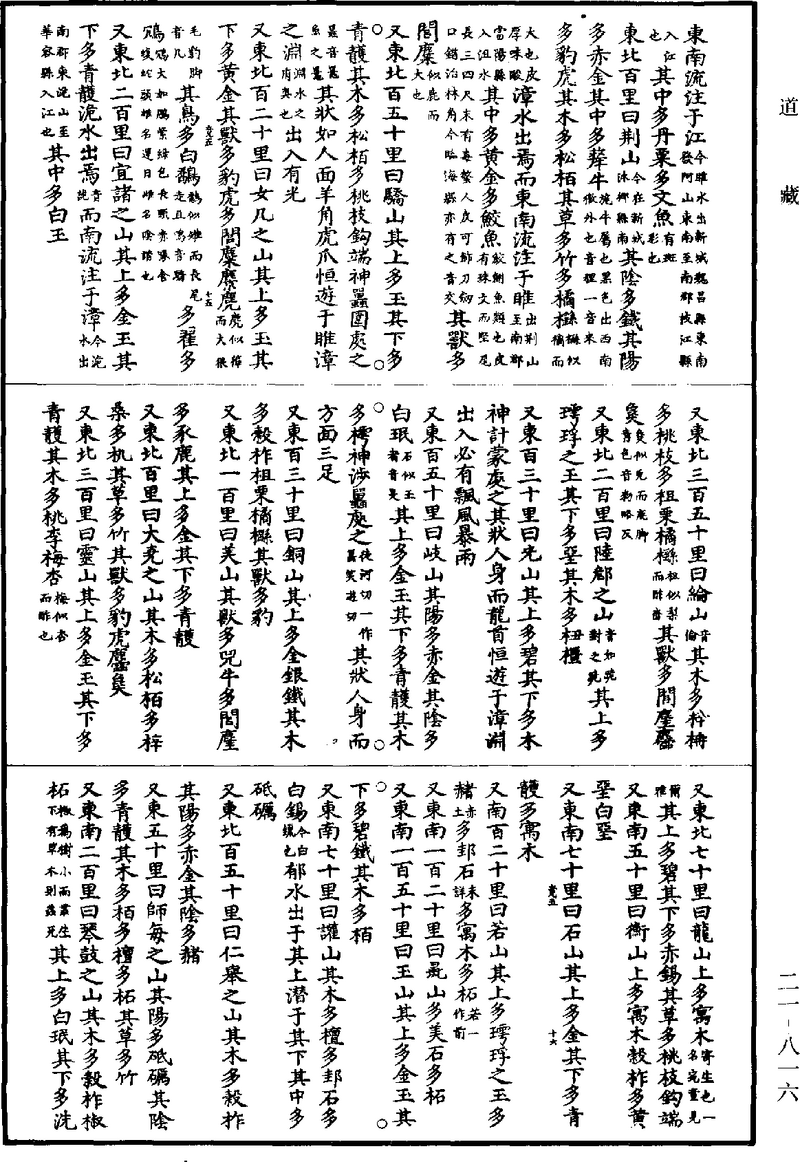 道藏
東南流注于江今睢水出新城魏昌縣東南發阿山東南至南郡枝江縣
入江也其中多丹粟多文魚有斑彩也
東北百里曰荊山今在新城沐鄉縣南其陰多鐵其陽
多赤金其中多犛牛旄牛屬也黑色出西南徼外也音狸一音來
多豹虎其木多松栢其草多竹多橘櫾櫾似橘而
大也皮厚味酸漳水出焉而東南流注于睢出荊山至南郡
當陽縣入沮水其中多黃金多鮫魚鮫鮒魚類也皮有珠文而堅尾
長三四尺末有毒螫人皮可飾刀劍口錯治材角今臨海縣亦有之音交其獸多
閭麋似鹿而大也
又東北百五十里曰驕山其上多玉其下多
青䨼其木多松栢多桃枝鈎端神䰠圍處之
䰠音鼉魚之鼉其狀如人面羊角虎爪恒遊于睢漳
之淵淵水之府奧也出入有光
又東北百二十里曰女几之山其上多玉其
下多黃金其獸多豹虎多閭麋麖麂麂似獐而大猥
竟五
十五
毛豹脚音几其鳥多白鷮鷮似雉而長尾走且鳴音驕多翟多
鴆鴆大如鵰紫綠色長頸赤喙食蝮蛇頭雄名運日雌名陰諧也
又東北二百里曰宜諸之山其上多金玉其
下多青䨼洈水出焉音詭而南流注于漳今洈水出
南郡東洈山至華容縣入江也其中多白玉
又東北三百五十里曰綸山音倫其木多梓枏
多桃枝多柤栗橘櫾柤似梨而酢齒其獸多閭麈麢
㚟㚟似兔而鹿脚青色音勑略反
又東北二百里曰陸䣀之山音如詭對之詭其上多
㻬琈之玉其下多堊其木多杻橿
又東百三十里曰光山其上多碧其下多木
神計蒙處之其狀人身而龍首恒遊于漳淵
出入必有飄風暴雨
又東百五十里曰岐山其陽多赤金其陰多
白珉石似玉者音旻其上多金玉其下多青䨼其木
多樗神涉䰠處之徒河切一作䰠笑遊切其狀人身而
方面三足
又東百三十里曰銅山其上多金銀鐵其木
多榖柞柤栗橘櫾其獸多豹
又東北一百里曰美山其獸多兕牛多閭麈
多豕鹿其上多金其下多青䨼
又東北百里曰大堯之山其木多松栢多梓
桑多机其草多竹其獸多豹虎麢㚟
又東北三百里曰靈山其上多金玉其下多
青䨼其木多桃李梅杏梅似杏而酢也
又東北七十里曰龍山上多寓木寄生也一名宛童見
爾雅其上多碧其下多赤錫其草多桃枝鈎端
又東南五十里曰衡山上多寓木榖柞多黃
堊白堊
又東南七十里曰石山其上多金其下多青
竟五
十六
䨼多寓木
又南百二十里曰若山其上多㻬琈之玉多
赭赤土多封石未詳多寓木多柘若一作前
又東南一百二十里曰彘山多美石多柘
又東南一百五十里曰玉山其上多金玉其
下多碧鐵其木多栢
又東南七十里曰讙山其木多檀多封石多
白錫今白鑞也郁水出于其上潛于其下其中多
砥礪
又東北百五十里曰仁舉之山其木多榖柞
其陽多赤金其陰多赭
又東五十里曰師每之山其陽多砥礪其陰
多青䨼其木多栢多檀多柘其草多竹
又東南二百里曰琴鼓之山其木多榖柞椒
柘椒為樹小而叢生下有草木則蠚死其上多白珉其下多洗
二一－八一六